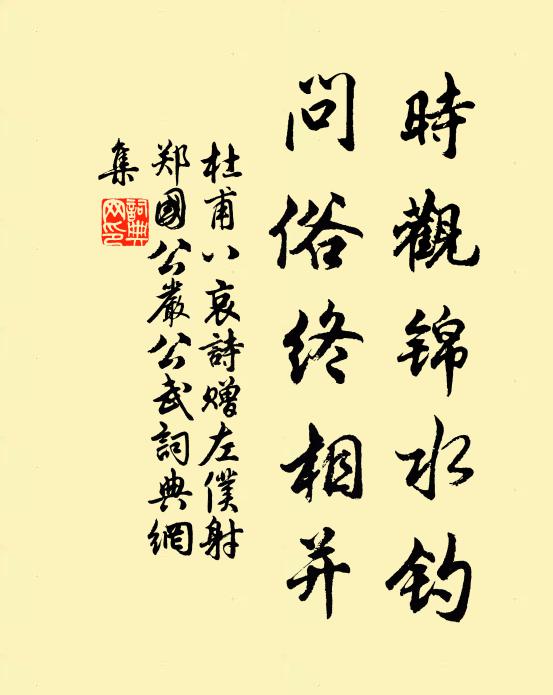 時觀锦水钓
問俗终相并
杜甫八哀詩赠左僕射
郑國公嚴公武詞典網
集
詞典网印